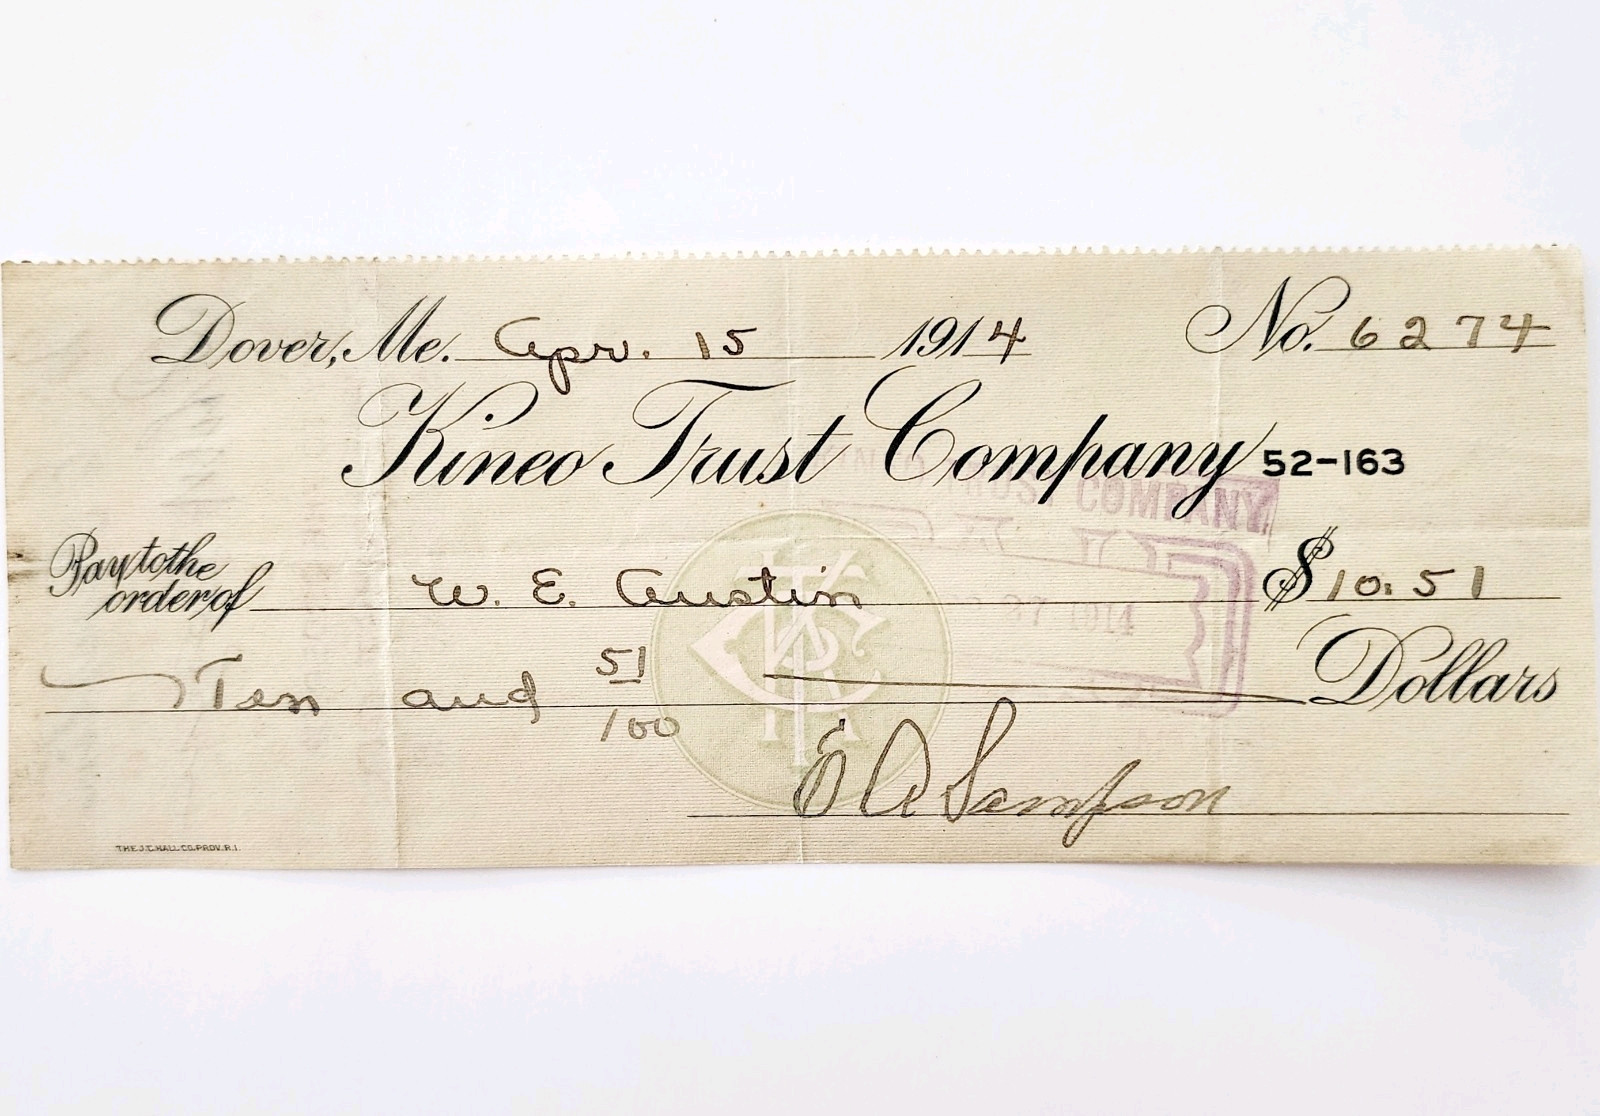 Dover, Me. Apr. 15 1914 No. 6274
Kineo Trust Company 52-163
TRUST COMPANY
Pay to the order of W. E. Austin $10.51
27 1914
Ten and 51/100 Dollars
E A Sampson
THE J.C. HALL CO. PROV. R.I.